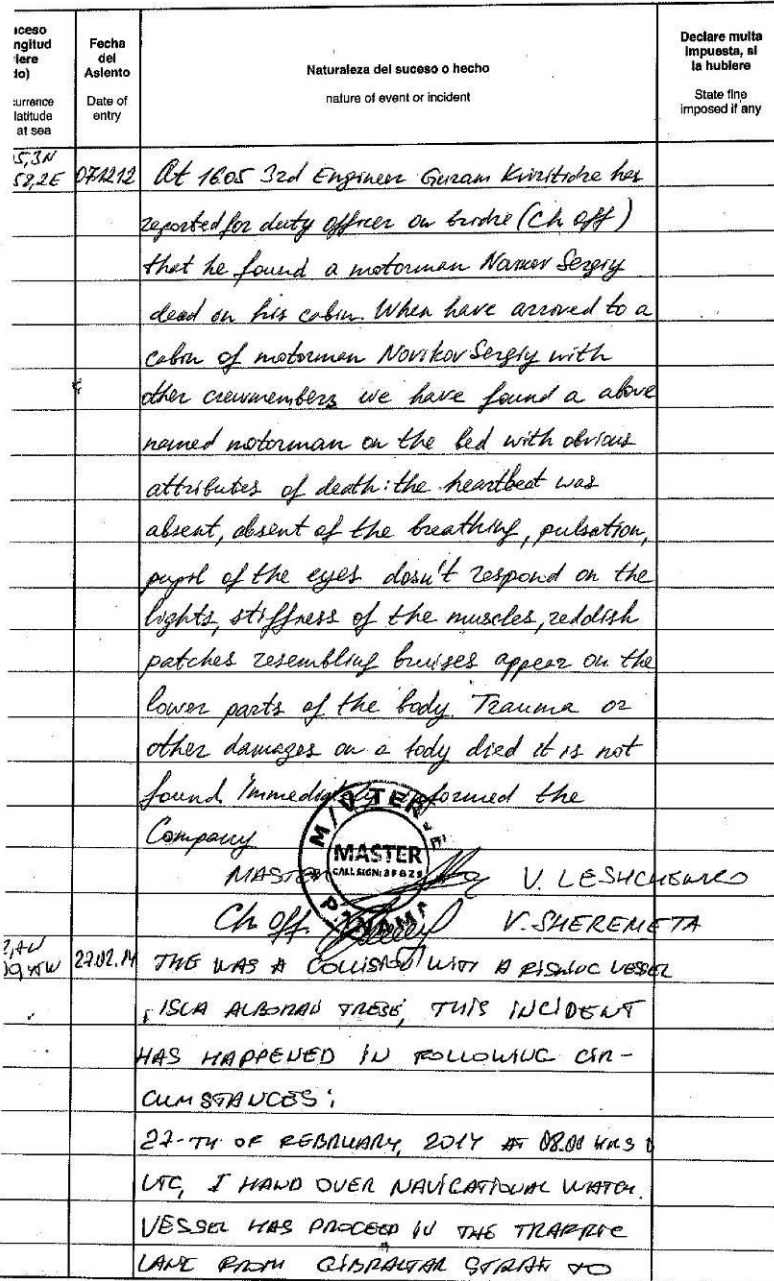 uceso
ngitud
iere
do)
currence
latitude
at sea
Fecha
del
Asiento
Date of
entry
Naturaleza del suceso o hecho
nature of event or incident
Declare multa
impuesta, si
la hubiere
State fine
imposed if any
5,3N
58,2E 07.12.12 At 16.05 3rd Engineer Guram has
reported for duty officer on bridre (Ch off)
that he found a motorman Sergiy
dead on his cabin. When have arrived to a
cabin of motorman Novikov Sergiy with
other crewmembers we have found a above
named motorman on the bed with obvious
attributes of death: the heartbeat was
absent, absent of the breathing, pulsation,
pupil of the eyes dosn't respond on the
lights, stiffness of the muscles, reddish
patches resembling bruises appear on the
lower parts of the body. Trauma or
other damages on a body died it is not
found. Immediately informed the
Company
M/V TER
MASTER
CALL SIGN: 3FGZ9
PANAMA
MASTER V. LESHCHENKO
Ch off. V. SHEREMETA
27.02.14 THE WAS A COLLISION WITH A FISHING VESSEL
"ISLA ALBORAN TRESE", THIS INCIDENT
HAS HAPPENED IN FOLLOWING CIR-
CUMSTANCES:
27-TH OF FEBRUARY, 2014 AT 08.00 HRS
UTC, I HAND OVER NAVIGATIONAL WATCH.
VESSEL HAS PROCEED IN THE TRAFFIC
LANE FROM GIBRALTAR STRAIT TO